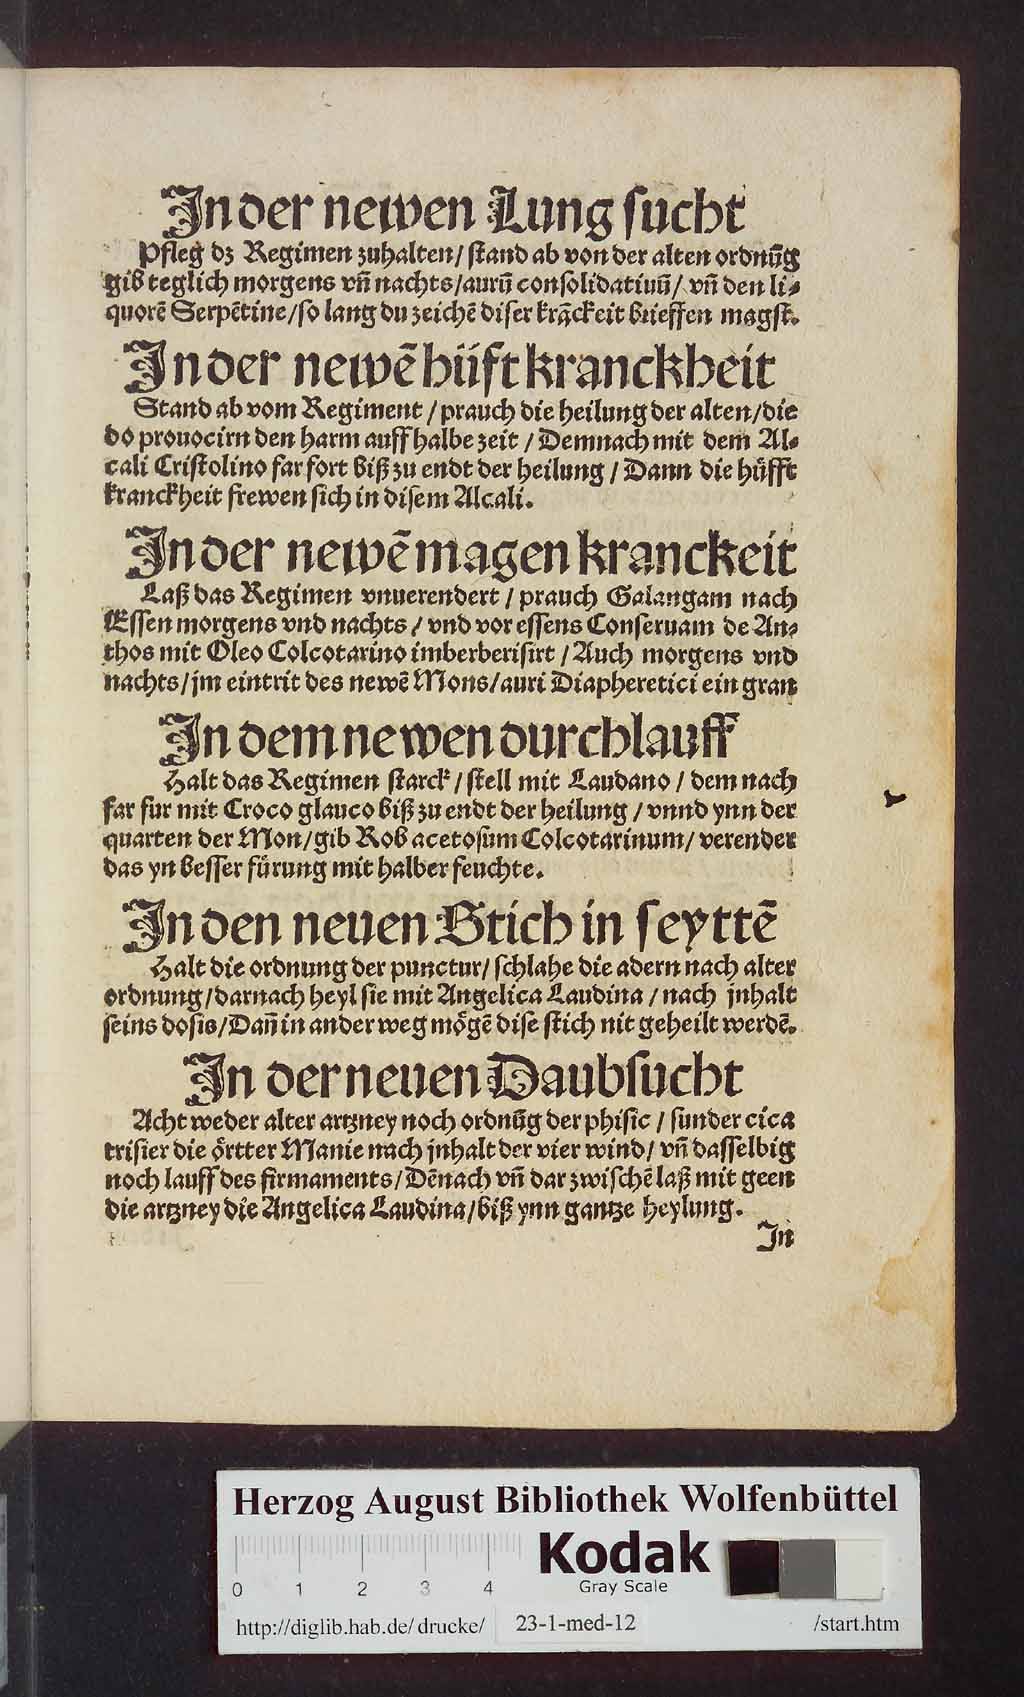 In der newen Lung sucht
Pfleg dz Regimen zuhalten/ stand ab von der alten ordnūg
gib teglich morgens vñ nachts/aurū consolidatiuū/ vñ den li⸗
quorē Serpētine/so lang du zeichē diser krāckeit brieffen magst.
In der newē hüfft kranckheit
Stand ab vom Regiment / prauch die heilung der alten/die
do prouocirn den harm auff halbe zeit / Demnach mit dem Al⸗
cali Cristolino far fort biß zu endt der heilung / Dann die hüfft
kranckheit frewen sich in disem Alcali.
In der newē magen kranckeit
Laß das Regimen vnuerendert / prauch Galangam nach
Essen morgens vnd nachts / vnd vor essens Conseruam de An⸗
thos mit Oleo Colcotarino imberberisirt / Auch morgens vnd
nachts/jm eintrit des newē Mons/auri Diapheretici ein gran
In dem newen durchlauff
Halt das Regimen starck / stell mit Laudano / dem nach
far fur mit Croco glauco biß zu endt der heilung / vnnd ynn der
quarten der Mon/gib Rob acetosum Colcotarinum/ verender
das yn besser fürung mit halber feuchte.
In den neuen Stich in seyttē
Halt die ordnung der punctur/ schlahe die adern nach alter
ordnung/darnach heyl sie mit Angelica Laudina / nach jnhalt
seins dosis/Dañ in ander weg mögē dise stich nit geheilt werdē.
In der neuen Daubsucht
Acht weder alter artzney noch ordnūg der phisic / sunder cica
trisier die örtter Manie nach jnhalt der vier wind/ vñ dasselbig
noch lauff des firmaments/Dēnach vñ dar zwischē laß mit geen
die artzney die Angelica Laudina/biß ynn gantze heylung.
In
Herzog August Bibliothek Wolfenbüttel
Kodak
Gray Scale
0 1 2 3 4
http://diglib.hab.de/drucke/ 23-1-med-12 /start.htm